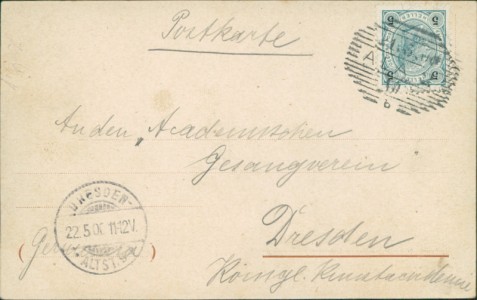 Postkarte
5 HELLER 5
5 5
b
An den „Academischen
Gesangverein
DRESDEN-
22.5.0 11-12V.
ALTST.
Dresden
Königl. Kunstacademie